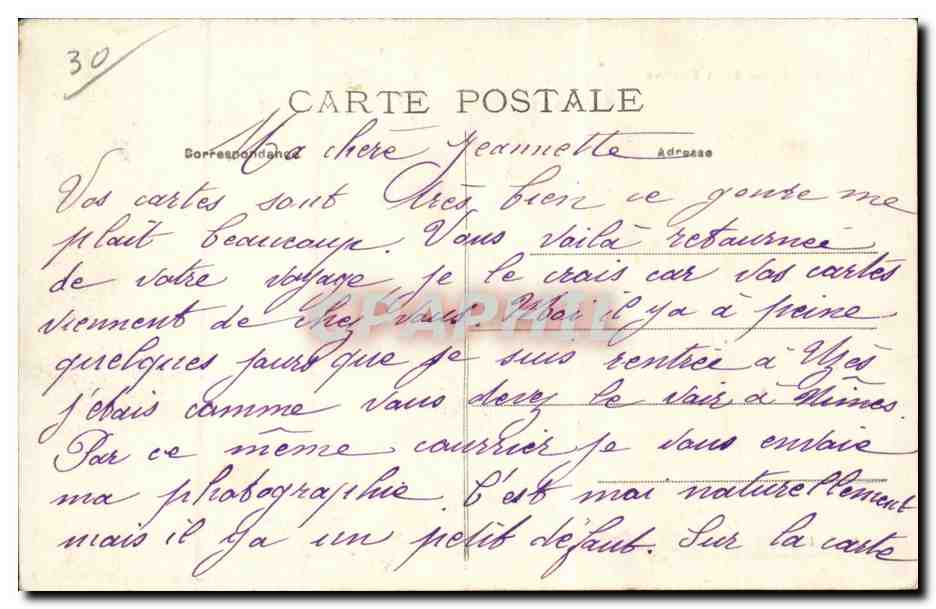 30
CARTE POSTALE
Correspondance
Adresse
Ma chère Jeannette
Vos cartes sont très bien ce genre me
plait beaucoup. Vous voilà retournée
de votre voyage, je le crois car vos cartes
viennent de chez vous. Moi il y a à peine
quelques jours que je suis rentrée à Uzès
j'étais comme vous devez le voir à Nîmes.
Par ce même courrier je vous envoie
ma photographie. C'est moi naturellement
mais il y a un petit défaut. Sur la carte
CPAPHIL